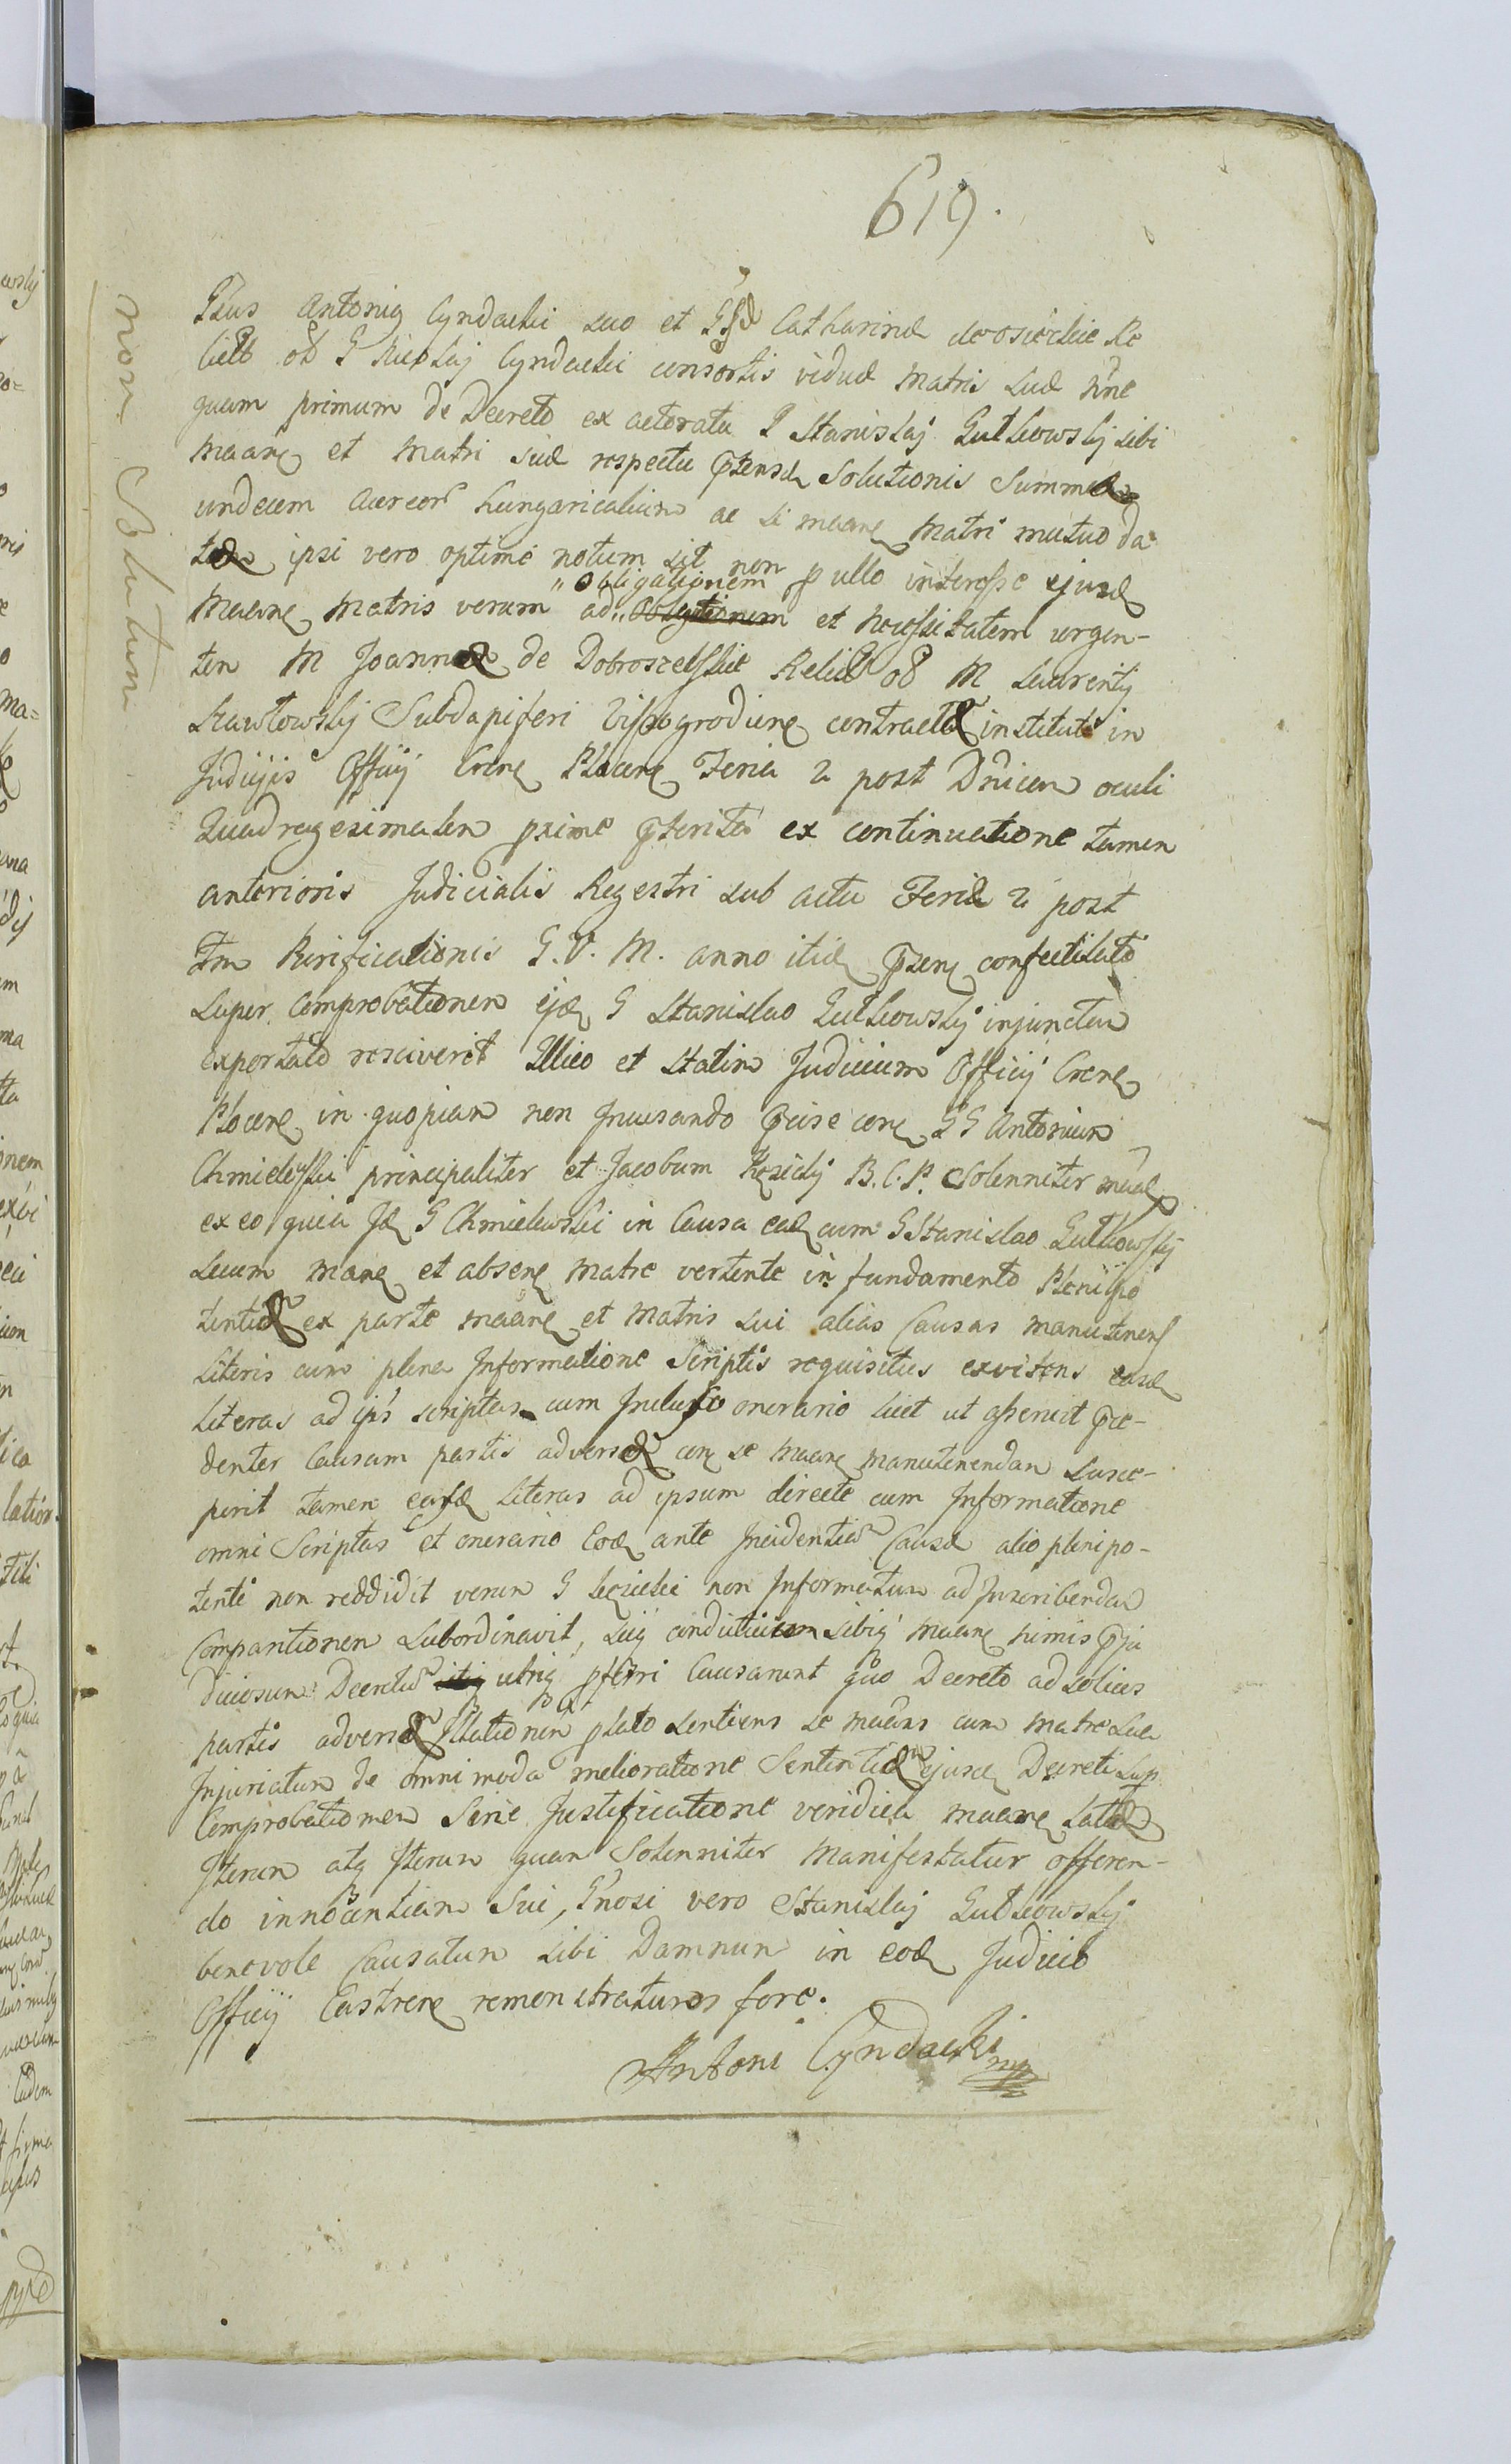 619.
non Solutum
Gsus Antonig Cyndacki suo et Gsæ Catharinæ de osieckie Re
lictæ ol G Nicolaj Cyndacki consortis viduæ Matris suæ nne
quam primum de Decreto ex actoratu G Stanislaj Gutkowskij sibi
maane et Matri suæ respectu ptensæ Solutionis Summæ
undecim Aureor Hungaricalium ac si maane Matri mutuo da
tæ ipsi vero optime notum sit non p ullo interesse ejusd
Maane Matris verum ad obligationem et necessitatem urgen-
tem M Joannæ de Dobroszelskie Relictæ ol M Laurentij
Szawłowskij Subdapiferi Vissogrodiene contractæ institute in
Judicijs Officij Crene Plocene Feria 2 post Dnicam oculi
Quadragesimalem proxime pterita ex continuatione tamen
anterioris Judicialis Regestri sub actu Feria 2 post
Ftm Purificationis G. V. M. anno itid psene confectitato
super Comprobationem ejd G Stanislao Gutkowskij injunctam
exportato resciverit Illico et statim Judicium Officij Crene
Plocene in quopiam non Incusando pcise con GG Antonium
Chmielewski principaliter et Jacobum Kęsickij B. C. P. Solenniter
ex eo quia Id G Chmielewski in Causa ead cum G Stanislao Gutkowskij
secum mane et absene Matre vertente in fundamento Plenipo
tentiæ ex parte maane et Matris sui alias Causas manutenens
Literis cum plena Informatione Scriptis requisitus existens easd
Literas ad ips scriptas cum Incluso onerario licet ut asseruit pce-
denter Causam partis adversæ con se maane manutenendam susce-
perit tamen easd Literas ad ipsum directe cum Informatione
omni Scriptas et onerario Eod ante Incidentiam Causæ alio plenipo-
tenti non reddidit verum G Kęsicki non Informatum ad Inscribendam
Comparitionem subordinavit, sicq conductitium sibiq maane nimis pju
diciosum Decretum utriq pferri Causarunt quo Decreto ad solius
partis adversæ Illationem plato sentiens se maans cum matre sua
Injuriatum de omnimoda melioratione Sententiæ ejusd Decreti sup
Comprobationem Serie Justificatione veridica maane latæ
Iterum atq Iterum quam Solenniter Manifestatur offeren-
do innocentiam Sui, Gnosi vero Stanislaj Gutkowskij
benevole Causatum sibi Damnum in eod Judicio
Officij Castrene remonstraturos fore.
Antoni Cyndacki mp